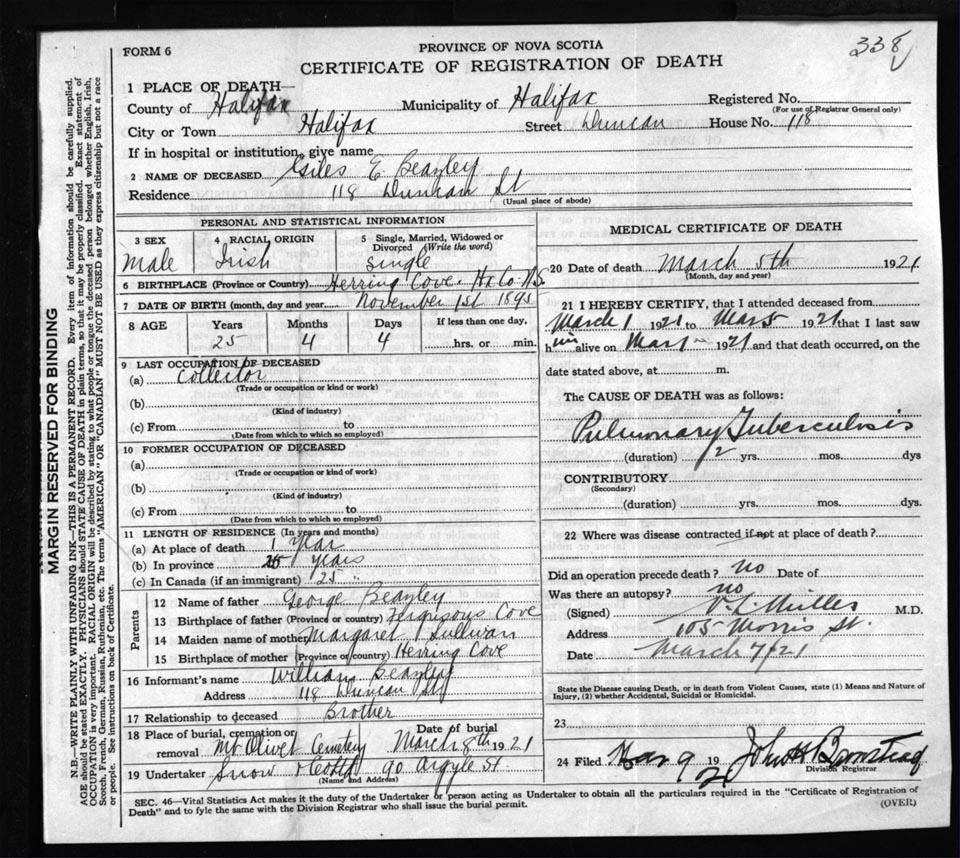 338
FORM 6
PROVINCE OF NOVA SCOTIA
CERTIFICATE OF REGISTRATION OF DEATH
1 PLACE OF DEATH—
County of Halifax Municipality of Halifax Registered No.
(For use of Registrar General only)
City or Town Halifax Street Duncan House No. 118
If in hospital or institution, give name
2 NAME OF DECEASED Giles E Beazley
Residence 118 Duncan St
(Usual place of abode)
PERSONAL AND STATISTICAL INFORMATION
3 SEX 4 RACIAL ORIGIN 5 Single, Married, Widowed or
Divorced (Write the word)
Male Irish Single
6 BIRTHPLACE (Province or Country) Herring Cove. Hx Co N.S.
7 DATE OF BIRTH (month, day and year) November 1st 1895
8 AGE Years Months Days If less than one day,
25 4 4 hrs. or min.
9 LAST OCCUPATION OF DECEASED
(a) Collector
(Trade or occupation or kind or work)
(b)
(Kind of industry)
(c) From to
(Date from which to which so employed)
10 FORMER OCCUPATION OF DECEASED
(a)
(Trade or occupation or kind of work)
(b)
(Kind of industry)
(c) From to
(Date from which to which so employed)
11 LENGTH OF RESIDENCE (In years and months)
(a) At place of death 1 Year
(b) In province 25 years
(c) In Canada (if an immigrant) 25 "
Parents
12 Name of father George Beazley
13 Birthplace of father (Province or country) Fergusons Cove
14 Maiden name of mother Margaret Sullivan
15 Birthplace of mother (Province or country) Herring Cove
16 Informant's name William Beazley
Address 118 Duncan St
17 Relationship to deceased Brother
18 Place of burial, cremation or Date of burial
removal Mt Olivet Cemetery March 8th 1921
19 Undertaker Snow 90 Argyle St.
(Name and Address)
MEDICAL CERTIFICATE OF DEATH
20 Date of death March 5th 1921
(Month, day and year)
21 I HEREBY CERTIFY, that I attended deceased from
March 1 1921 to Mar 5 1921 that I last saw
him alive on Mar 1921 and that death occurred, on the
date stated above, at m.
The CAUSE OF DEATH was as follows:
Pulmonary Tuberculosis
(duration) 2 yrs. mos. dys
CONTRIBUTORY
(Secondary)
(duration) yrs. mos. dys.
22 Where was disease contracted if not at place of death?
Did an operation precede death? no Date of
Was there an autopsy? no
(Signed) V. L. Miller M.D.
Address 105 Morris St.
Date March 7/21
State the Disease causing Death, or in death from Violent Causes, state (1) Means and Nature of
Injury, (2) whether Accidental, Suicidal or Homicidal.
23
24 Filed Mar 9 1921
Division Registrar
SEC. 46—Vital Statistics Act makes it the duty of the Undertaker or person acting as Undertaker to obtain all the particulars required in the "Certificate of Registration of
Death" and to fyle the same with the Division Registrar who shall issue the burial permit.
(OVER)
MARGIN RESERVED FOR BINDING
N.B.—WRITE PLAINLY WITH UNFADING INK—THIS IS A PERMANENT RECORD. Every item of information should be carefully supplied.
AGE should be stated EXACTLY. PHYSICIANS should STATE CAUSE OF DEATH in plain terms, so that it may be properly classified. Exact statement of
OCCUPATION is very important. RACIAL ORIGIN will be described by stating to what people or tongue the deceased person belonged whether English, Irish,
Scotch, French, German, Russian, Ruthenian, etc. The terms "AMERICAN" or "CANADIAN" MUST NOT BE USED as they express citizenship but not a race
or people. See instructions on back of Certificate.